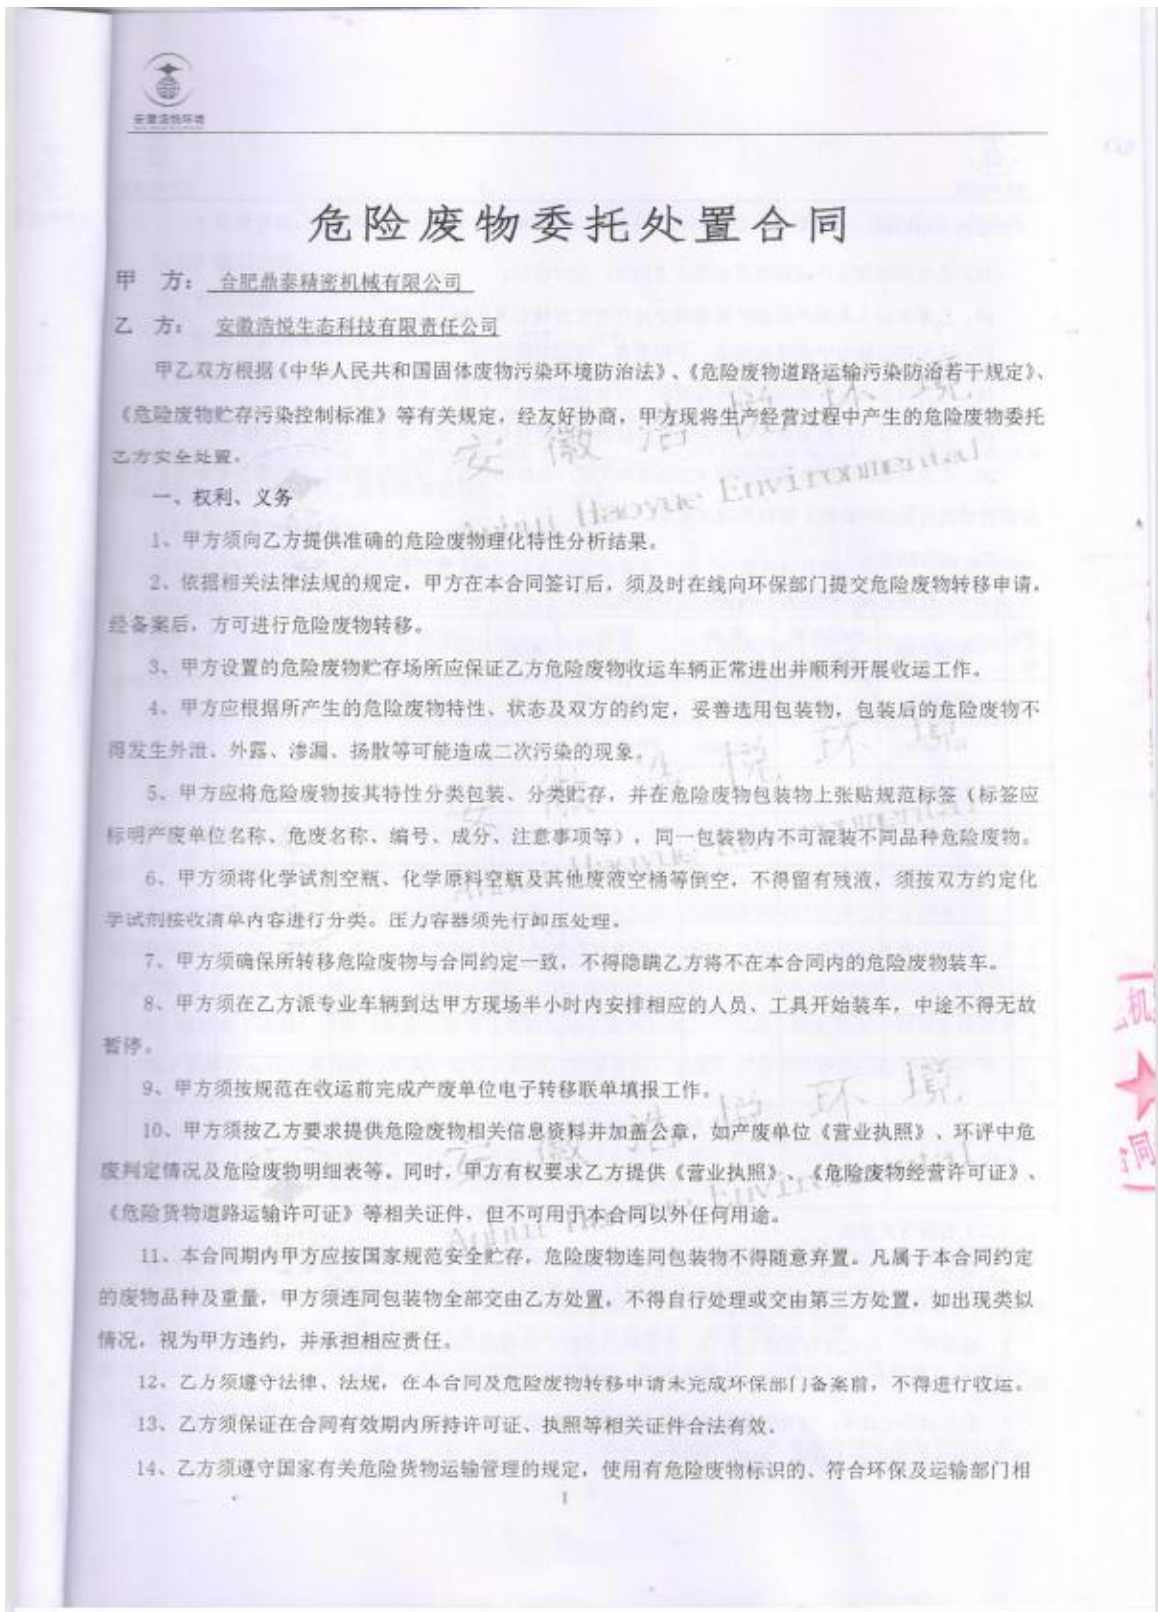 安徽浩悦环境
危险废物委托处置合同
甲 方： 合肥鼎泰精密机械有限公司
乙 方： 安徽浩悦生态科技有限责任公司
甲乙双方根据《中华人民共和国固体废物污染环境防治法》、《危险废物道路运输污染防治若干规定》、
《危险废物贮存污染控制标准》等有关规定，经友好协商，甲方现将生产经营过程中产生的危险废物委托
乙方安全处置。
一、权利、义务
1、甲方须向乙方提供准确的危险废物理化特性分析结果。
2、依据相关法律法规的规定，甲方在本合同签订后，须及时在线向环保部门提交危险废物转移申请，
经备案后，方可进行危险废物转移。
3、甲方设置的危险废物贮存场所应保证乙方危险废物收运车辆正常进出并顺利开展收运工作。
4、甲方应根据所产生的危险废物特性、状态及双方的约定，妥善选用包装物，包装后的危险废物不
得发生外泄、外露、渗漏、扬散等可能造成二次污染的现象。
5、甲方应将危险废物按其特性分类包装、分类贮存，并在危险废物包装物上张贴规范标签（标签应
标明产废单位名称、危废名称、编号、成分、注意事项等），同一包装物内不可混装不同品种危险废物。
6、甲方须将化学试剂空瓶、化学原料空瓶及其他废液空桶等倒空，不得留有残液，须按双方约定化
学试剂接收清单内容进行分类。压力容器须先行卸压处理。
7、甲方须确保所转移危险废物与合同约定一致，不得隐瞒乙方将不在本合同内的危险废物装车。
8、甲方须在乙方派专业车辆到达甲方现场半小时内安排相应的人员、工具开始装车，中途不得无故
暂停。
9、甲方须按规范在收运前完成产废单位电子转移联单填报工作。
10、甲方须按乙方要求提供危险废物相关信息资料并加盖公章，如产废单位《营业执照》、环评中危
废判定情况及危险废物明细表等。同时，甲方有权要求乙方提供《营业执照》、《危险废物经营许可证》、
《危险货物道路运输许可证》等相关证件，但不可用于本合同以外任何用途。
11、本合同期内甲方应按国家规范安全贮存，危险废物连同包装物不得随意弃置。凡属于本合同约定
的废物品种及重量，甲方须连同包装物全部交由乙方处置，不得自行处理或交由第三方处置，如出现类似
情况，视为甲方违约，并承担相应责任。
12、乙方须遵守法律、法规，在本合同及危险废物转移申请未完成环保部门备案前，不得进行收运。
13、乙方须保证在合同有效期内所持许可证、执照等相关证件合法有效。
14、乙方须遵守国家有关危险货物运输管理的规定，使用有危险废物标识的、符合环保及运输部门相
1
安徽浩悦环境
Anhui Haoyue Environmental
安徽浩悦环境
Anhui Haoyue Environmental
安徽浩悦环境
Anhui Haoyue Environmental
机
同